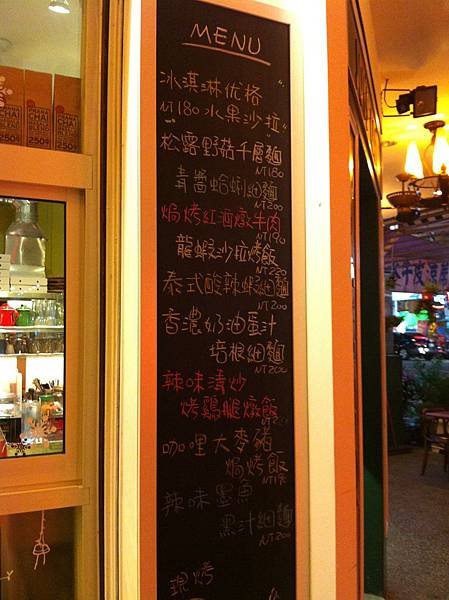 MENU
冰淇淋优格
NT180 水果沙拉
松露野菇千層麵
NT180
青醬蛤蜊細麵
NT200
焗烤紅酒燉牛肉
NT190
龍蝦沙拉烤飯
NT220
泰式酸辣蝦細麵
NT200
香濃奶油蛋汁
培根細麵
NT200
辣味清炒
烤雞腿燉飯
咖哩大麥豬
焗烤飯
辣味墨魚
黑汁細麵
NT200
現烤
CHAI
250